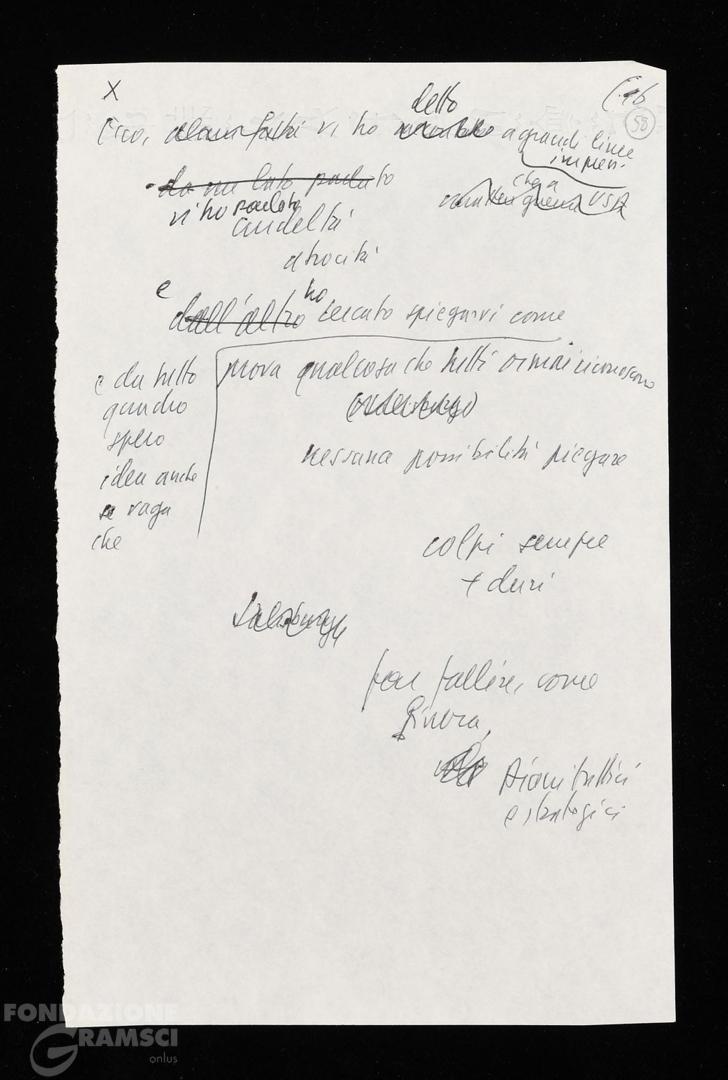 X
detto
58
Ecco, alcuni fatti vi ho a grandi linee
da un lato parlato
vi ho parlato
crudeltà
che a
guerra USA
atrocità
e
ho
dall'altro cercato spiegarvi come
prova qualcosa che tutti ormai riconoscono
e da tutto
quando
spero
idea anche
se vaga
che
(Salisbury)
nessuna possibilità piegare
colpi sempre
+ duri
Salisbury
far fallire, come
finora,
piani tattici
e strategici
FONDAZIONE
GRAMSCI
onlus